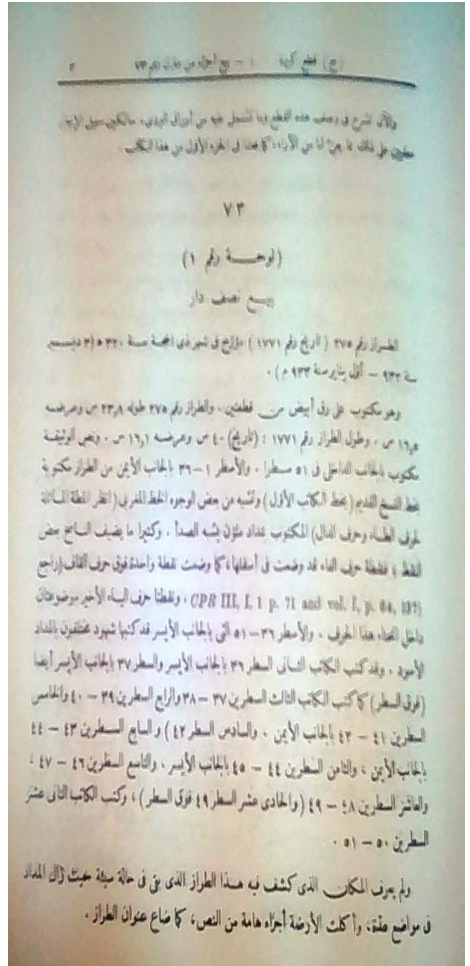 (ج) قطع كبيرة ١ - بيع أجزاء من منازل رقم ٧٣ ٣
والآن نشرع فى وصف هذه القطع وما تشتمل عليه من أوراق البردى، سالكين سبيل
على ذلك بما لنا من الآراء، كما فعلنا فى الجزء الأول من هذا الكتاب .
٧٣
(لوحة رقم ١)
بيع نصف دار
الطراز رقم ٢٧٥ ( تاريخ رقم ١٧٧١ ) مؤرخ فى شهر ذى الحجة سنة ٣٢٠ ھ (٣ ديسمبر
سنة ٩٣٢ - أول يناير سنة ٩٣٣ م ) .
وهو مكتوب على رق أبيض من قطعتين . والطراز رقم ٢٧٥ طوله ٢٣٫٨ س وعرضه
١٦٫٥ س . وطول الطراز رقم ١٧٧١ : (تاريخ) ٤٠ س وعرضه ١٦٫١ س . ونص الوثيقة
مكتوب بالجانب الداخلى فى ٥١ سطرا . والأسطر ١-٣٦ بالجانب الأيمن من الطراز مكتوبة
بخط النسخ القديم ( بخط الكاتب الأول ) وتشبه من بعض الوجوه الخط المغربى ( انظر المطة المائلة
لحرف الطاء وحرف الدال) المكتوب بمداد ملون يشبه الصدأ . وكثيرا ما يضيف الناسخ بعض
النقط ؛ فنقطة حرف الفاء قد وضعت فى أسفلها، كما وضعت نقطة واحدة فوق حرف القاف (راجع
CPR III, I, 1 p. 71 and vol. I, p. 64, 137) . ونقطتا حرف الياء الأخير موضوعتان
داخل انحناء هذا الحرف . والأسطر ٣٦-٥١ التى بالجانب الأيسر قد كتبها شهود مختلفون بالمداد
الأسود . وقد كتب الكاتب الثانى السطر ٣٦ بالجانب الأيسر والسطر ٣٧ بالجانب الأيسر أيضا
(فوق السطر) كما كتب الكاتب الثالث السطرين ٣٧ - ٣٨ والرابع السطرين ٣٩ - ٤٠ والخامس
السطرين ٤١ - ٤٢ بالجانب الأيمن . والسادس السطر ٤٢) والسابع السطرين ٤٣ - ٤٤
بالجانب الأيمن ، والثامن السطرين ٤٤ - ٤٥ بالجانب الأيسر . والتاسع السطرين ٤٦ - ٤٧ ،
والعاشر السطرين ٤٨ - ٤٩ ( والحادى عشر السطر ٤٩ فوق السطر) ، وكتب الكاتب الثانى عشر
السطرين ٥٠ - ٥١ .
ولم يعرف المكان الذى كشف فيه هذا الطراز الذى بقى فى حالة سيئة حيث زال المداد
فى مواضع عدة، وأكلت الأرضة أجزاء هامة من النص، كما ضاع عنوان الطراز .